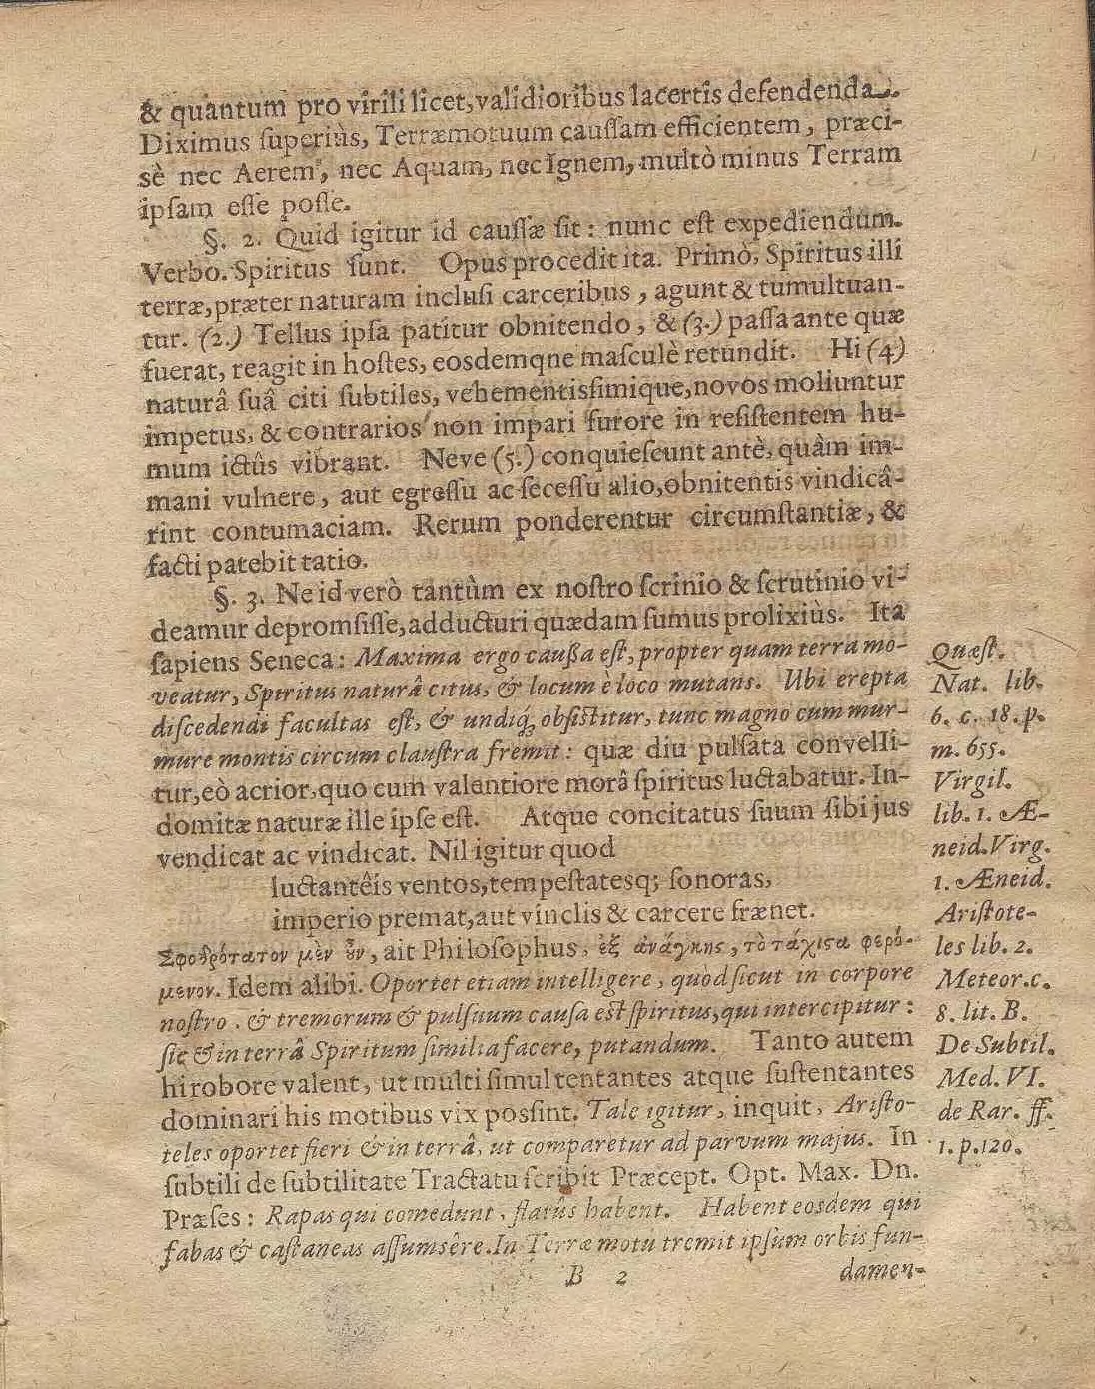 & quantum pro virili licet, validioribus lacertis defendenda.
Diximus ſuperiùs, Terræmotuum cauſſam efficientem, præci-
sè nec Aerem, nec Aquam, nec Ignem, multò minus Terram
ipſam eſſe poſſe.
§. 2. Quid igitur id cauſſæ ſit: nunc eſt expediendum.
Verbo. Spiritus ſunt. Opus procedit ita. Primò, Spiritus illi
terræ, præter naturam incluſi carceribus, agunt & tumultuan-
tur. (2.) Tellus ipſa patitur obnitendo, & (3.) paſſa ante quæ
fuerat, reagit in hoſtes, eosdemqne maſculè retundit. Hi (4)
naturâ ſuâ citi ſubtiles, vehementisſimique, novos moliuntur
impetus, & contrarios non impari furore in reſiſtentem hu-
mum ictûs vibrant. Neve (5.) conquieſcunt antè, quàm im-
mani vulnere, aut egreſſu ac ſeceſſu alio, obnitentis vindicâ-
rint contumaciam. Rerum ponderentur circumſtantiæ, &
facti patebit tatio.
§. 3. Ne id verò tantùm ex noſtro ſcrinio & ſcrutinio vi-
deamur depromſiſſe, adducturi quædam ſumus prolixiùs. Ita
ſapiens Seneca: Maxima ergo cauſſa eſt, propter quam terra mo-
veatur, Spiritus naturâ citus, & locum è loco mutans. Ubi erepta
diſcedendi facultas eſt, & undiq; obſiſtitur, tunc magno cum mur-
mure montis circum clauſtra fremit: quæ diu pulſata convelli-
tur, eò acrior, quo cum valentiore morâ ſpiritus luctabatur. In-
domitæ naturæ ille ipſe eſt. Atque concitatus ſuum ſibi jus
vendicat ac vindicat. Nil igitur quod
luctantêis ventos, tempeſtatesq; ſonoras,
imperio premat, aut vinclis & carcere frænet.
Σφοδρότατον μὲν ȣ̓ν, ait Philoſophus, ἐξ ἀνάγκης, τὸ τάχιςα φερό-
μενον. Idem alibi. Oportet etiam intelligere, quod ſicut in corpore
noſtro. & tremorum & pulſuum cauſa eſt ſpiritus, qui intercipitur:
ſic & in terrâ Spiritum ſimilia facere, putandum. Tanto autem
hi robore valent, ut multi ſimul tentantes atque ſuſtentantes
dominari his motibus vix posſint. Tale igitur, inquit, Ariſto-
teles oportet fieri & in terrâ, ut comparetur ad parvum majus. In
ſubtili de ſubtilitate Tractatu ſcribit Præcept. Opt. Max. Dn.
Præſes: Rapas qui comedunt, flatûs habent. Habent eosdem qui
fabas & caſtaneas aſſumsêre. In Terræ motu tremit ipſum orbis fun-
B 2 damen-
Quæſt.
Nat. lib.
6. c. 18. p.
m. 655.
Virgil.
lib. 1. Æ-
neid. Virg.
1. Æneid.
Ariſtote-
les lib. 2.
Meteor. c.
8. lit. B.
De Subtil.
Med. VI.
de Rar. ff.
1. p. 120.